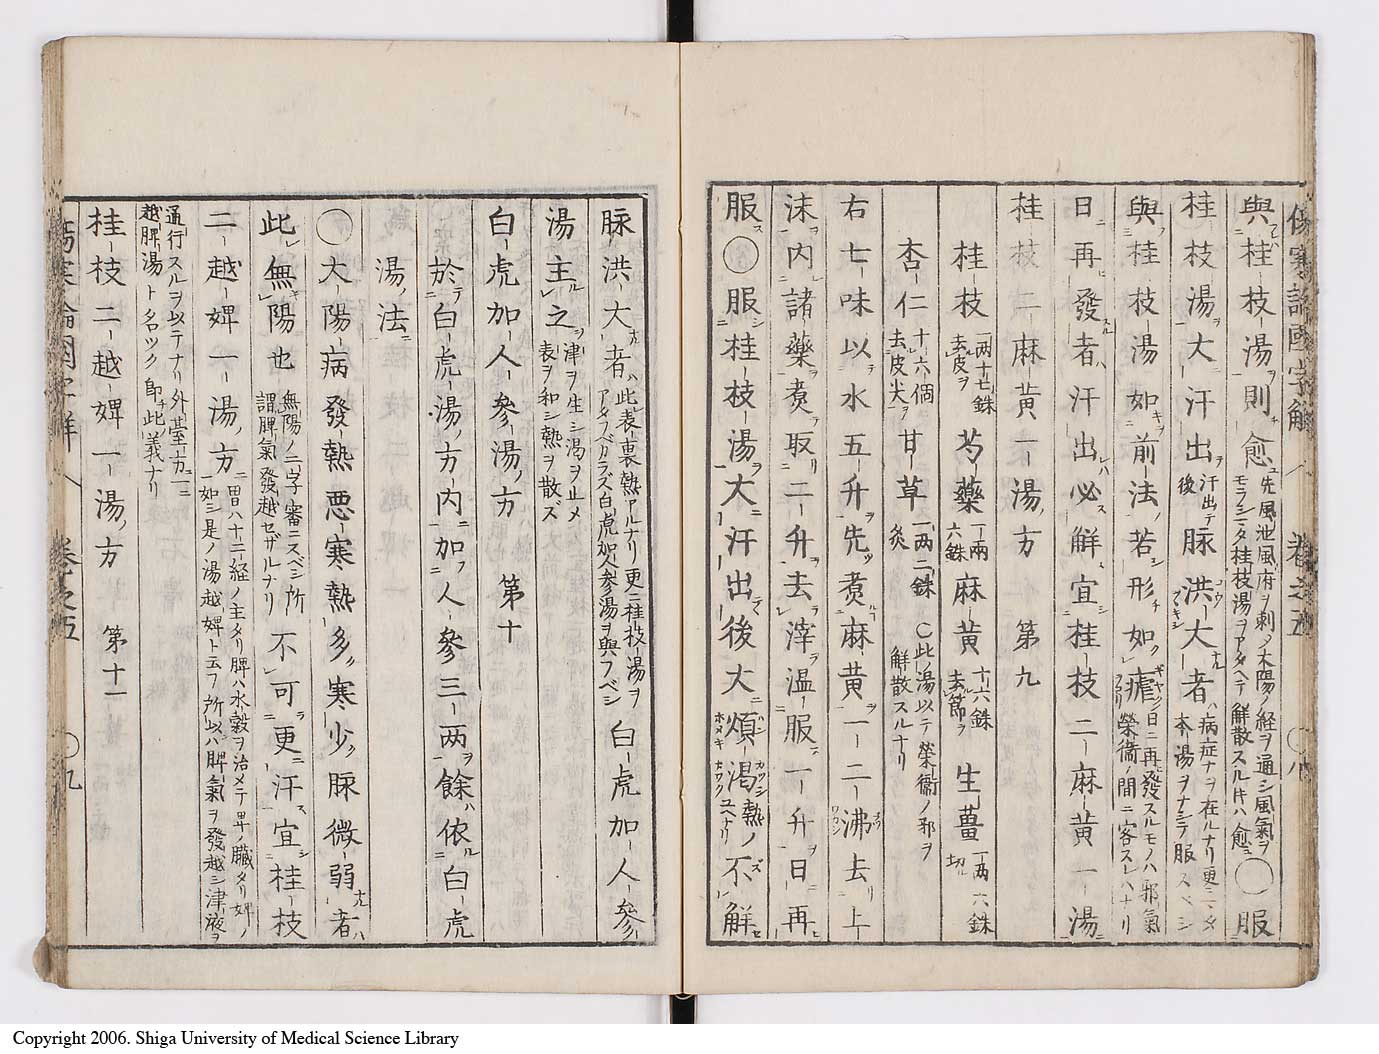 傷寒論國字解 卷之五 ○八
與桂枝湯則愈 先風池風府ヲ刺メ太陽ノ経ヲ通シ風氣ヲモラシ桂枝湯ヲアタヘテ解散スルキハ愈ユ ○服
桂枝湯大汗出後 汗出テ 脉洪大者 病症ナヲ在ルナリ更ニ本湯ヲナシテ服スベシ
與桂枝湯如前法若形如瘧 日ニ再發スルモノハ邪氣榮衞ノ間ニ客スレハナリ
日再發者汗出必解宜桂枝二麻黄一湯
桂枝二麻黄一湯方 第九
桂枝 一兩十七銖去皮ヲ 芍藥 一兩六銖 麻黄 十六銖去節ヲ 生薑 一兩六銖切ル
杏仁 十六個去皮尖ヲ 甘草 一兩二銖炙 ○此ノ湯以テ榮衞ノ邪ヲ解散スルナリ
右七味以水五升先煑麻黄一二沸去上
沫内諸藥煑取二升去滓温服一升日再
服○服桂枝湯大汗出後大煩渴熱ノ不解
脉洪大者 此表裏熱アルナリ更ニ桂枝湯ヲアタフベカラズ白虎加人參湯ヲ與フベシ 白虎加人參
湯主之 津ヲ生シ渴ヲ止メ表ヲ和シ熱ヲ散ズ
白虎加人參湯方 第十
於白虎湯方内加人參三兩餘依白虎
湯法
○大陽病發熱悪寒熱多寒少脉微弱者
此無陽也 無陽ノ二字審ニスベシ所謂脾氣發越セザルナリ 不可更汗宜桂枝
二越婢一湯方 胃ハ十二経ノ主タリ脾ハ水穀ヲ治メテ卑ノ臓タリ婢ノ如シ是ノ湯越婢ト云フ所以ハ脾氣ヲ發越シ津液ヲ
通行スルヲ以テナリ外臺ノ方ニ越脾湯ト名ツク即チ此ノ義ナリ
桂枝二越婢一湯方 第十一
傷寒論國字解 卷之五 ○九
Copyright 2006. Shiga University of Medical Science Library